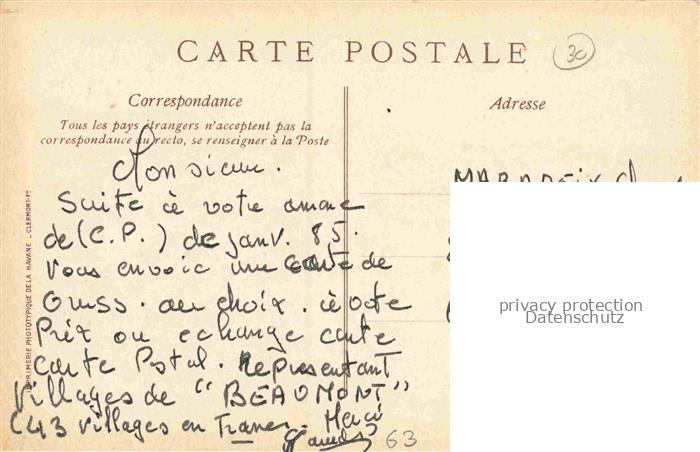 CARTE POSTALE
30
Correspondance
Adresse
Tous les pays étrangers n'acceptent pas la
correspondance au recto, se renseigner à la Poste
Monsieur.
Suite à votre annonce
de (C.P.) de janv. 85.
Vous envoie une carte de
au choix. à votre
Prix ou echange carte
carte Postal. Représentant
Villages de "BEAUMONT"
(43 villages en France. Merci
63
IMPRIMERIE PHOTOTYPIQUE DE LA HAVANE - CLERMONT-FT
privacy protection
Datenschutz